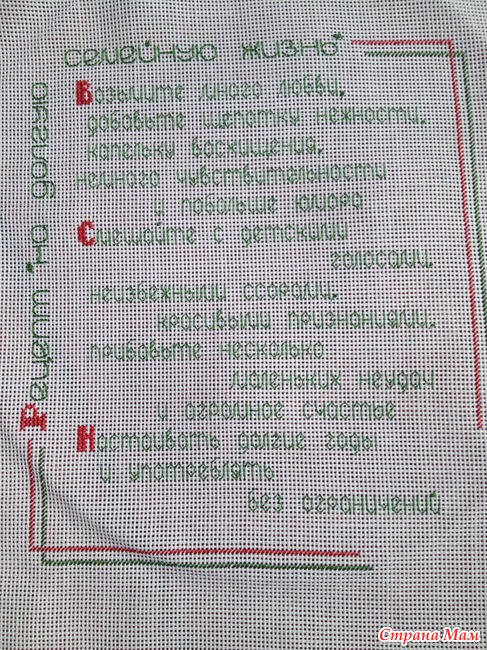 Рецепт на долгую
семейную жизнь
Возьмите много любви,
добавьте щепотку нежности,
капельку восхищения,
немного чувствительности
и побольше юмора
Смешайте с детскими
голосами,
неизбежными ссорами,
красивыми признаниями,
прибавьте несколько
маленьких неудач
и огромное счастье
Настаивать долгие годы
и употреблять
без ограничений
Страна Мам